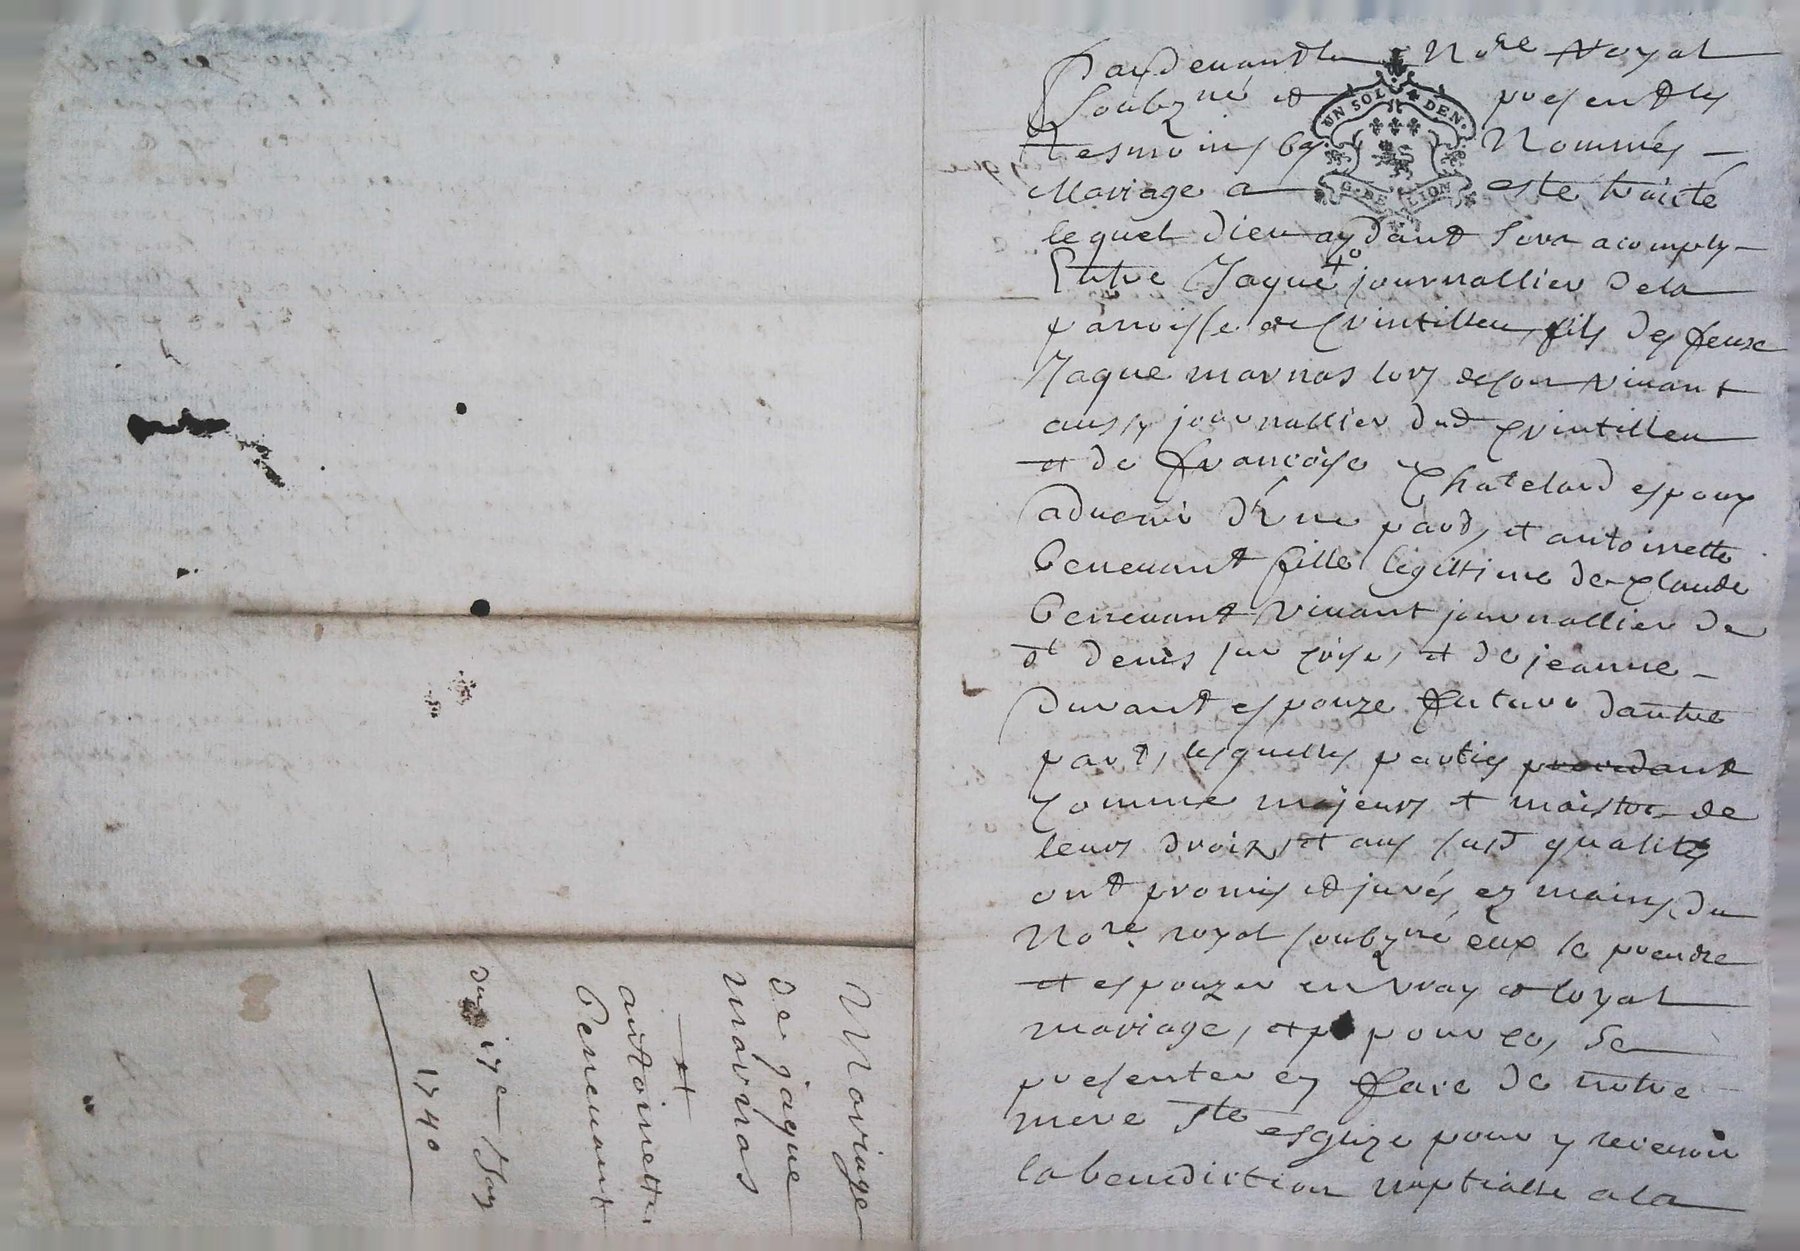 Mariage
de jaque
marnas
et
antoinette
Benevant
du 17e
1740
Pardevant le Nore Royal
soubzné et presents les
tesmoins bas Nommés
UN SOL DEN.
G. DE LION
Mariage a este traicté
lequel dieu aydant sera acomply
Entre Jaque journallier dela
parroisse de Crintilleu fils de feux
Jaque marnas lors de son vivant
aussy journallier dud Crintilleu
et de françoise Chatelard espoux
advenir d'Une part, et antoinette
Benevant fille legittime de Claude
Benevant vivant journallier de
st denis sur Coise, et de jeanne
Durant espouze future dautre
part, lesquelles parties
Comme majeurs et maistre de
leurs droix, et aux susd qualités
ont promis et jurés ez mains du
Nore royal soubzné eux se prendre
et espouzer en vray et loyal
mariage, et pour ce, se
presenter en face de notre
mere ste esglize pour y recevoir
la benediction nuptialle a la